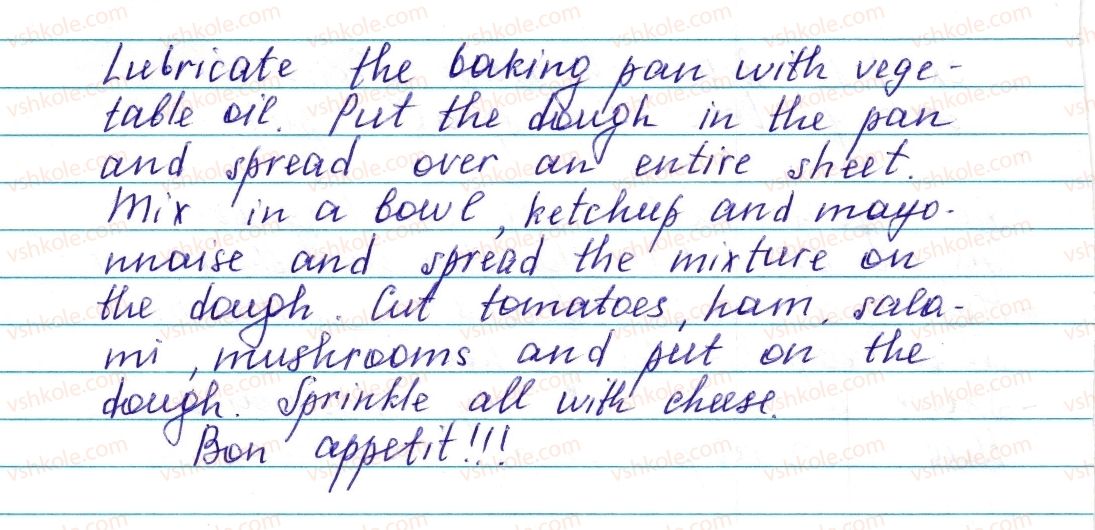 Lubricate the baking pan with vege-
table oil. Put the dough in the pan
and spread over an entire sheet.
Mix in a bowl, ketchup and mayo-
nnaise and spread the mixture on
the dough. Cut tomatoes, ham, sala-
mi, mushrooms and put on the
dough. Sprinkle all with cheese.
Bon appetit!!!